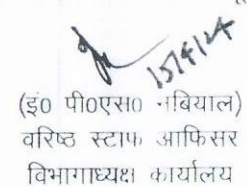 15/4/24
(इ0 पी0एस0 नबियाल)
वरिष्ठ स्टाफ आफिसर
विभागाध्यक्ष कार्यालय